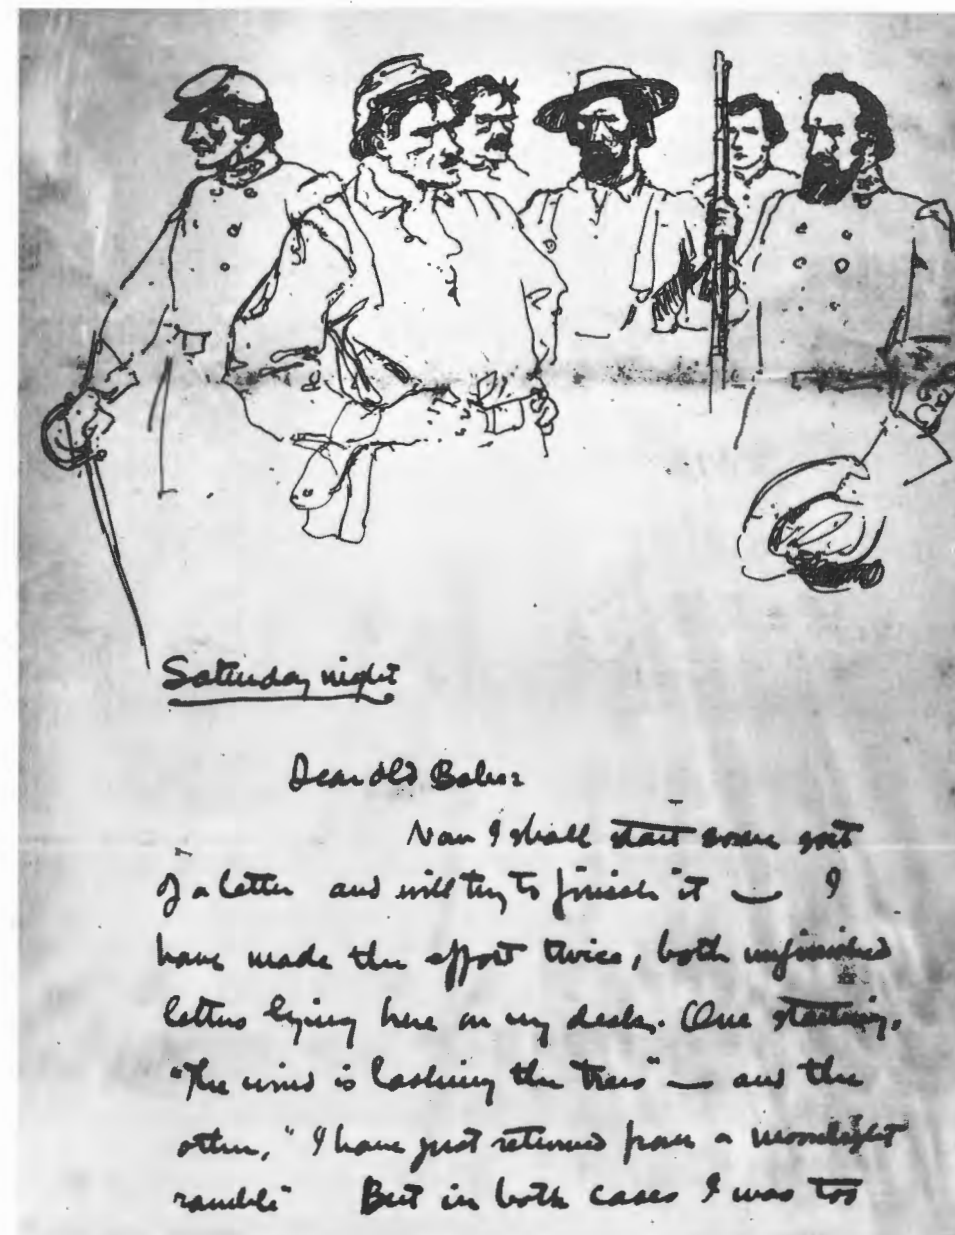 Saturday night
Dear old Babe:
Now I shall start some sort
of a letter and will try to finish it — I
have made the effort twice, both unfinished
letters lying here on my desk. One starting,
"The wind is lashing the trees" — and the
other, "I have just returned from a moonlight
ramble" But in both cases I was too